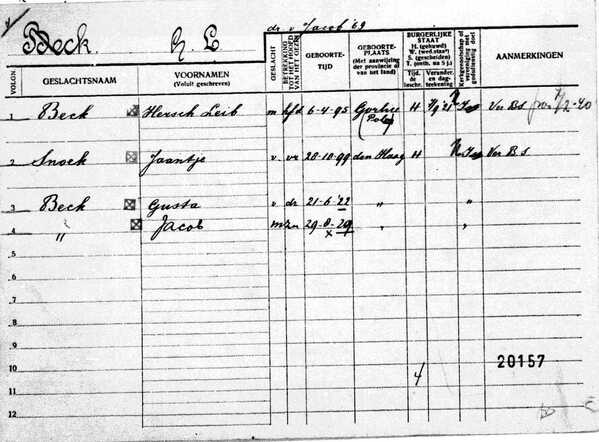 dr v Jacob '69
Beck H L
VOLGN.
GESLACHTSNAAM
VOORNAMEN
(Voluit geschreven)
GESLACHT
BETREKKING TOT HET HOOFD VAN HET GEZIN
GEBOORTE-
TIJD
GEBOORTE-
PLAATS
(Met aanwijzing
der provincie of
van het land)
BURGERLIJKE
STAAT
H. (gehuwd)
W. (wed.staat)
S. (gescheiden)
Tijd.
de
inschr.
Verander.
en dag-
teekening
AANMERKINGEN
1 Beck Hersch Leib m hfd 6-4-95 Gorlice (Polen) H
2 Snoek Jaantje v vr 20-10-99 den Haag H N.Isr Ver B S
3 Beck Gusta v dr 21-6-'22 " "
4 " Jacob m zn 29-8-'29 " "
x
5
6
7
8
9
10
11
12
20157
4